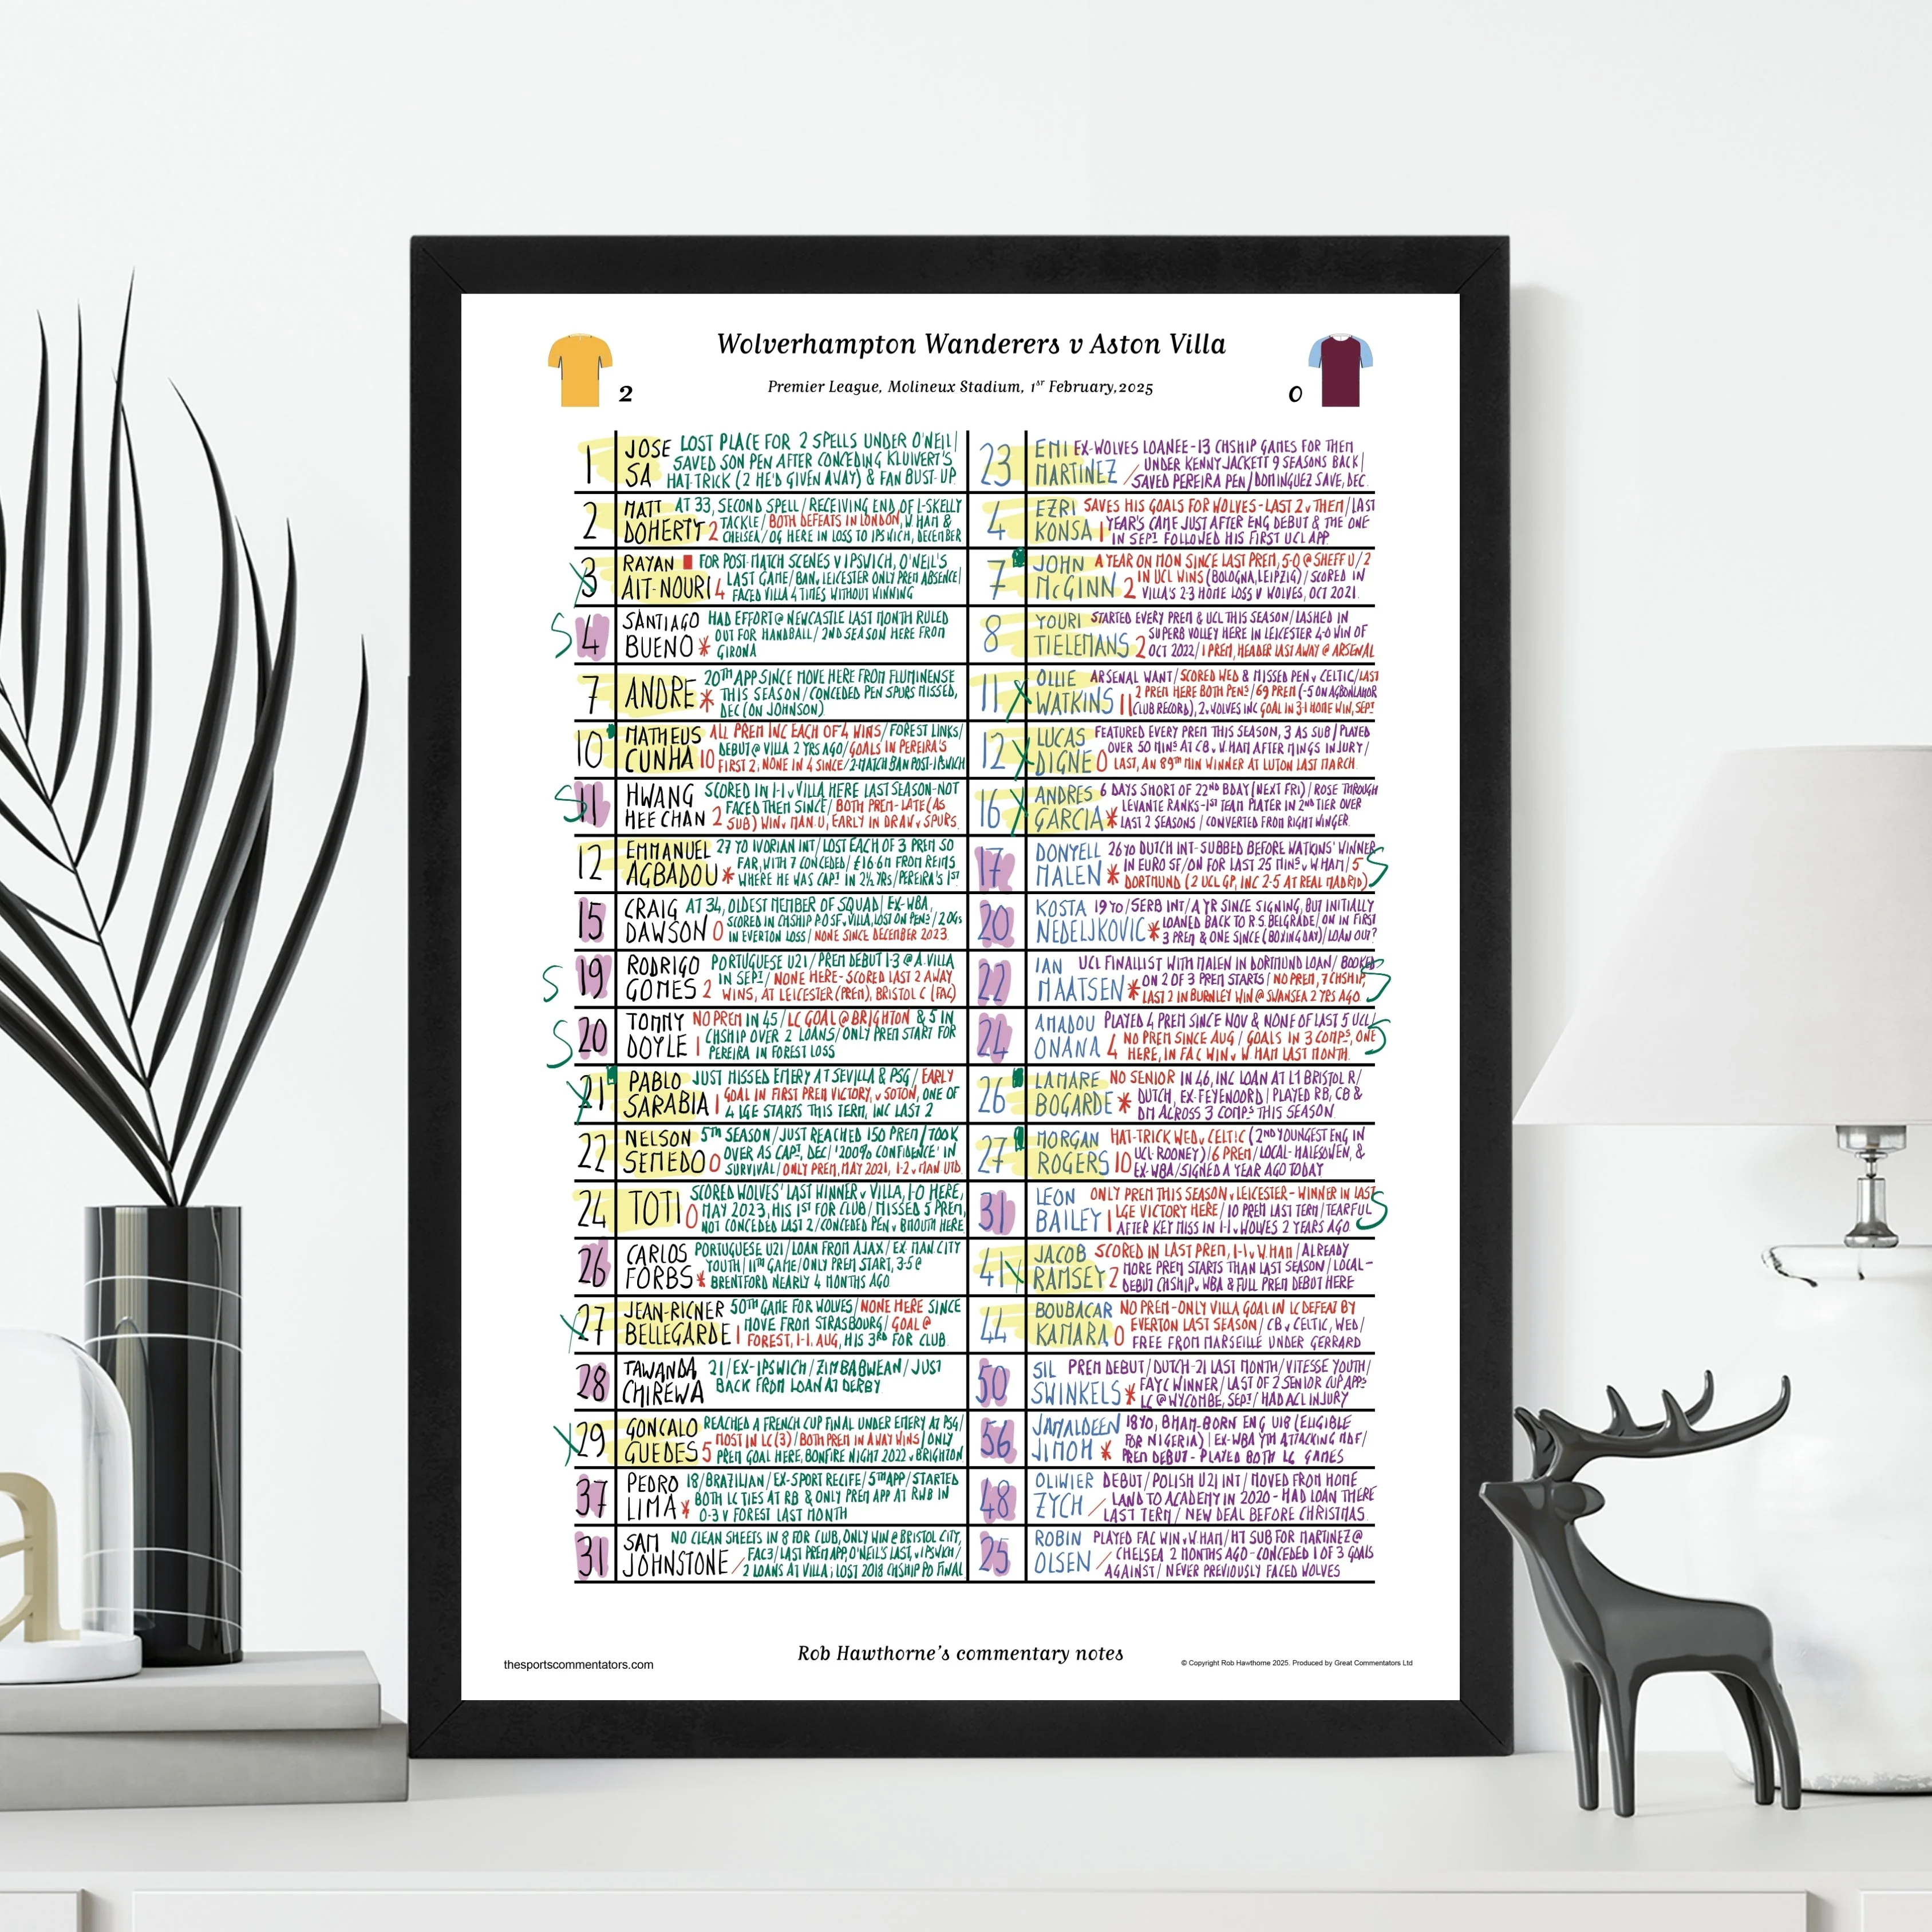 Wolverhampton Wanderers v Aston Villa
2
Premier League, Molineux Stadium, 1ST February, 2025
0
1 JOSE SA LOST PLACE FOR 2 SPELLS UNDER O'NEIL/
SAVED SON PEN AFTER CONCEDING KLUIVERT'S
HAT-TRICK (2 HE'D GIVEN AWAY) & FAN BUST-UP
2 MATT DOHERTY 2 AT 33, SECOND SPELL/RECEIVING END OF L-SKELLY
TACKLE/BOTH DEFEATS IN LONDON, W HAM &
CHELSEA/OG HERE IN LOSS TO IPSWICH, DECEMBER
X 3 RAYAN AIT-NOURI 4 FOR POST-MATCH SCENES V IPSWICH, O'NEIL'S
LAST GAME/BAN v LEICESTER ONLY PREM ABSENCE/
FACED VILLA 4 TIMES WITHOUT WINNING
S 4 SANTIAGO BUENO * HAD EFFORT @ NEWCASTLE LAST MONTH RULED
OUT FOR HANDBALL/2ND SEASON HERE FROM
GIRONA
7 ANDRE * 20TH APP SINCE MOVE HERE FROM FLUMINENSE
THIS SEASON/CONCEDED PEN SPURS MISSED,
DEC (ON JOHNSON)
10 MATHEUS CUNHA 10 ALL PREM INC EACH OF 4 WINS/FOREST LINKS/
DEBUT @ VILLA 2 YRS AGO/GOALS IN PEREIRA'S
FIRST 2, NONE IN 4 SINCE/2-MATCH BAN POST-IPSWICH
S 11 HWANG HEE CHAN 2 SCORED IN 1-1 v VILLA HERE LAST SEASON-NOT
FACED THEM SINCE/BOTH PREM-LATE (AS
SUB) WIN v MAN U, EARLY IN DRAW v SPURS
12 EMMANUEL AGBADOU * 27 YO IVORIAN INT/LOST EACH OF 3 PREM SO
FAR, WITH 7 CONCEDED/£16.6M FROM REIMS
WHERE HE WAS CAPT IN 2½ YRS/PEREIRA'S 1ST
15 CRAIG DAWSON 0 AT 34, OLDEST MEMBER OF SQUAD/EX-WBA,
SCORED IN CHSHIP PO SF v VILLA, LOST ON PENS/2 OGs
IN EVERTON LOSS/NONE SINCE DECEMBER 2023
S 19 RODRIGO GOMES 2 PORTUGUESE U21/PREM DEBUT 1-3 @ A.VILLA
IN SEPT/NONE HERE-SCORED LAST 2 AWAY
WINS, AT LEICESTER (PREM), BRISTOL C (FAC)
S 20 TOMMY DOYLE 1 NO PREM IN 45/LC GOAL @ BRIGHTON & 5 IN
CHSHIP OVER 2 LOANS/ONLY PREM START FOR
PEREIRA IN FOREST LOSS
X 21 PABLO SARABIA 1 JUST MISSED EMERY AT SEVILLA & PSG/EARLY
GOAL IN FIRST PREM VICTORY, v SOTON, ONE OF
4 LGE STARTS THIS TERM, INC LAST 2
22 NELSON SEMEDO 0 5TH SEASON/JUST REACHED 150 PREM/TOOK
OVER AS CAPT, DEC/'200% CONFIDENCE' IN
SURVIVAL/ONLY PREM, MAY 2021, 1-2 v MAN UTD
24 TOTI 0 SCORED WOLVES' LAST WINNER v VILLA, 1-0 HERE,
MAY 2023, HIS 1ST FOR CLUB/MISSED 5 PREM,
NOT CONCEDED LAST 2/CONCEDED PEN v BMOUTH HERE
26 CARLOS FORBS * PORTUGUESE U21/LOAN FROM AJAX/EX MAN CITY
YOUTH/11TH GAME/ONLY PREM START, 3-5 @
BRENTFORD NEARLY 4 MONTHS AGO
X 27 JEAN-RICNER BELLEGARDE 1 50TH GAME FOR WOLVES/NONE HERE SINCE
MOVE FROM STRASBOURG/GOAL @
FOREST, 1-1, AUG, HIS 3RD FOR CLUB
28 TAWANDA CHIREWA 21/EX-IPSWICH/ZIMBABWEAN/JUST
BACK FROM LOAN AT DERBY
X 29 GONCALO GUEDES 5 REACHED A FRENCH CUP FINAL UNDER EMERY AT PSG/
MOST IN LC (3)/BOTH PREM IN AWAY WINS/ONLY
PREM GOAL HERE, BONFIRE NIGHT 2022 v BRIGHTON
37 PEDRO LIMA * 18/BRAZILIAN/EX-SPORT RECIFE/5TH APP/STARTED
BOTH LC TIES AT RB & ONLY PREM APP AT RWB IN
0-3 V FOREST LAST MONTH
31 SAM JOHNSTONE / NO CLEAN SHEETS IN 8 FOR CLUB, ONLY WIN @ BRISTOL CITY,
FAC3/LAST PREM APP, O'NEIL'S LAST, v IPSWICH/
2 LOANS AT VILLA; LOST 2018 CHSHIP PO FINAL
23 EMI MARTINEZ / EX-WOLVES LOANEE-13 CHSHIP GAMES FOR THEM
UNDER KENNY JACKETT 9 SEASONS BACK/
SAVED PEREIRA PEN/DOMINGUEZ SAVE, DEC
4 EZRI KONSA 1 SAVES HIS GOALS FOR WOLVES-LAST 2 v THEM/LAST
YEAR'S CAME JUST AFTER ENG DEBUT & THE ONE
IN SEPT FOLLOWED HIS FIRST UCL APP
7 JOHN McGINN 2 A YEAR ON MON SINCE LAST PREM, 5-0 @ SHEFF U/2
IN UCL WINS (BOLOGNA, LEIPZIG)/SCORED IN
VILLA'S 2-3 HOME LOSS V WOLVES, OCT 2021
8 YOURI TIELEMANS 2 STARTED EVERY PREM & UCL THIS SEASON/LASHED IN
SUPERB VOLLEY HERE IN LEICESTER 4-0 WIN OF
OCT 2022/1 PREM, HEADER LAST AWAY @ ARSENAL
11 X OLLIE WATKINS 11 ARSENAL WANT/SCORED WED & MISSED PEN v CELTIC/LAST
2 PREM HERE BOTH PENS/69 PREM (-5 ON AGBONLAHOR
CLUB RECORD), 2 v WOLVES INC GOAL IN 3-1 HOME WIN, SEPT
12 X LUCAS DIGNE 0 FEATURED EVERY PREM THIS SEASON, 3 AS SUB/PLAYED
OVER 50 MINS AT CB v W.HAM AFTER MINGS INJURY/
LAST, AN 89TH MIN WINNER AT LUTON LAST MARCH
16 X ANDRES GARCIA * 6 DAYS SHORT OF 22ND BDAY (NEXT FRI)/ROSE THROUGH
LEVANTE RANKS-1ST TEAM PLAYER IN 2ND TIER OVER
LAST 2 SEASONS/CONVERTED FROM RIGHT WINGER
17 DONYELL MALEN * 26 YO DUTCH INT-SUBBED BEFORE WATKINS' WINNER
IN EURO SF/ON FOR LAST 25 MINS v W HAM/5
DORTMUND (2 UCL GP, INC 2-5 AT REAL MADRID) S
20 KOSTA NEDELJKOVIC * 19 YO/SERB INT/A YR SINCE SIGNING, BUT INITIALLY
LOANED BACK TO R S BELGRADE/ON IN FIRST
3 PREM & ONE SINCE (BOXING DAY)/LOAN OUT?
22 IAN MAATSEN * UCL FINALLIST WITH MALEN IN DORTMUND LOAN/BOOKED
ON 2 OF 3 PREM STARTS/NO PREM, 7 CHSHIP,
LAST 2 IN BURNLEY WIN @ SWANSEA 2 YRS AGO S
24 AMADOU ONANA 4 PLAYED 4 PREM SINCE NOV & NONE OF LAST 5 UCL/
NO PREM SINCE AUG/GOALS IN 3 COMPS, ONE
HERE, IN FAC WIN v W HAM LAST MONTH S
26 LAMARE BOGARDE * NO SENIOR IN 46, INC LOAN AT L1 BRISTOL R/
DUTCH, EX-FEYENOORD/PLAYED RB, CB &
DM ACROSS 3 COMPS THIS SEASON
27 MORGAN ROGERS 10 HAT-TRICK WED v CELTIC (2ND YOUNGEST ENG IN
UCL-ROONEY)/6 PREM/LOCAL-HALESOWEN, &
EX-WBA/SIGNED A YEAR AGO TODAY
31 LEON BAILEY 1 ONLY PREM THIS SEASON v LEICESTER-WINNER IN LAST
LGE VICTORY HERE/10 PREM LAST TERM/TEARFUL
AFTER KEY MISS IN 1-1 v WOLVES 2 YEARS AGO S
41 X JACOB RAMSEY 2 SCORED IN LAST PREM, 1-1 v W.HAM/ALREADY
MORE PREM STARTS THAN LAST SEASON/LOCAL-
DEBUT CHSHIP v WBA & FULL PREM DEBUT HERE
44 BOUBACAR KAMARA 0 NO PREM-ONLY VILLA GOAL IN LC DEFEAT BY
EVERTON LAST SEASON/CB v CELTIC, WED/
FREE FROM MARSEILLE UNDER GERRARD
50 SIL SWINKELS * PREM DEBUT/DUTCH-21 LAST MONTH/VITESSE YOUTH/
FAYC WINNER/LAST OF 2 SENIOR CUP APPS
LC @ WYCOMBE, SEPT/HAD ACL INJURY
56 JAMALDEEN JIMOH * 18 YO, BHAM-BORN ENG U18 (ELIGIBLE
FOR NIGERIA)/EX-WBA YTH ATTACKING MDF/
PREM DEBUT-PLAYED BOTH LC GAMES
48 OLIWIER ZYCH / DEBUT/POLISH U21 INT/MOVED FROM HOME
LAND TO ACADEMY IN 2020-HAD LOAN THERE
LAST TERM/NEW DEAL BEFORE CHRISTMAS
25 ROBIN OLSEN / PLAYED FAC WIN v W.HAM/HT SUB FOR MARTINEZ @
CHELSEA 2 MONTHS AGO-CONCEDED 1 OF 3 GOALS
AGAINST/NEVER PREVIOUSLY FACED WOLVES
Rob Hawthorne's commentary notes
thesportscommentators.com
© Copyright Rob Hawthorne 2025. Produced by Great Commentators Ltd
a